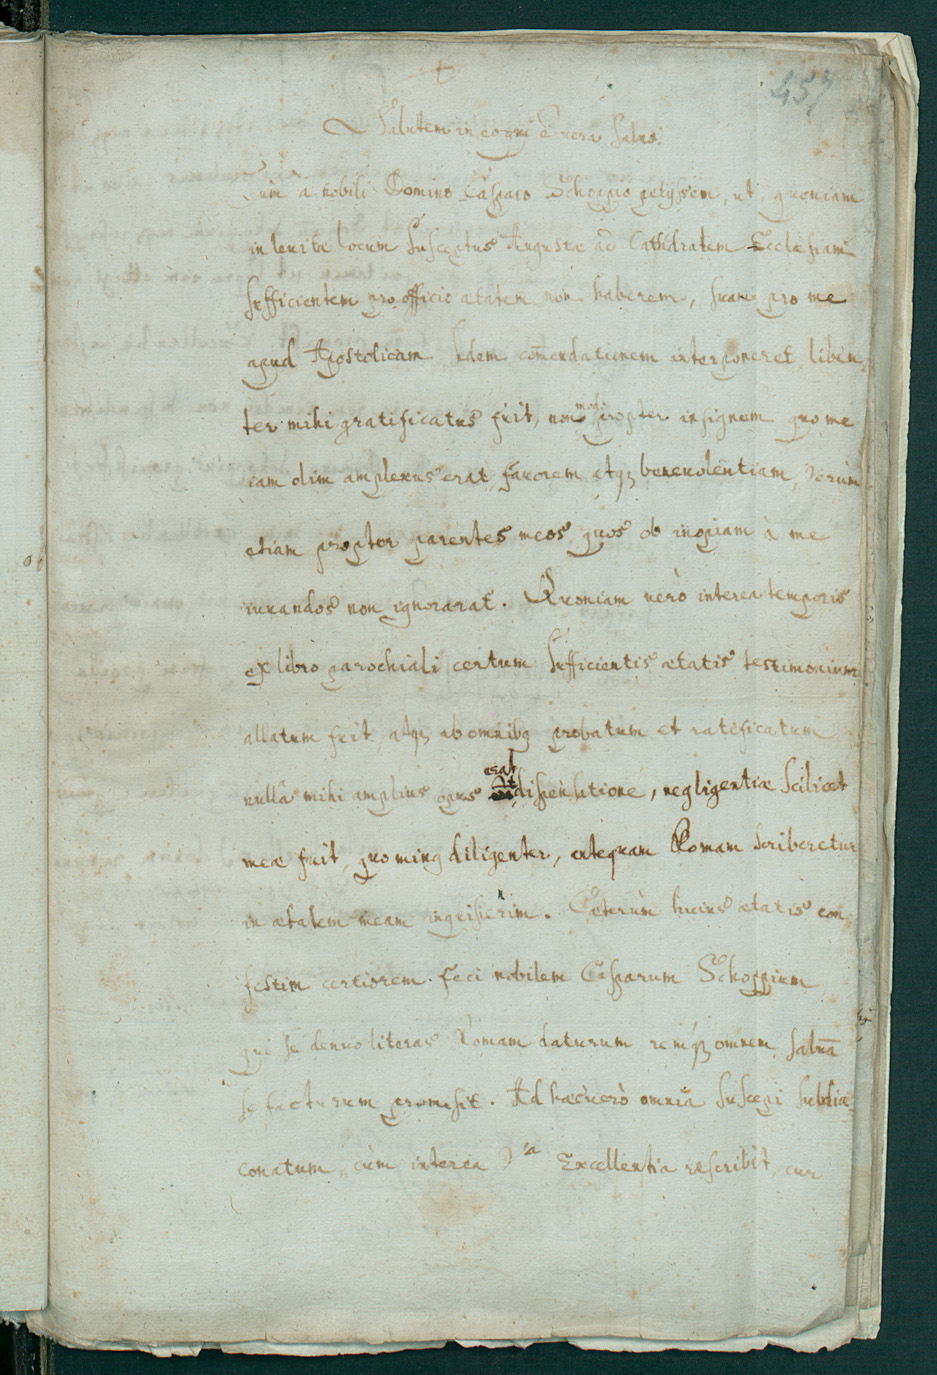 457
Salutem in eo qui e vera salus.
Cum a nobili Domino Casparo Schoppio petijssem, ut, quoniam
in leuitæ locum susceptus Augustæ ad Cathedralem Ecclesiam
sufficientem pro officio ætatem non haberem, suam pro me
apud Apostolicam sedem com̄endationem interponeret, liben
ter mihi gratificatus fuit, non modo propter insignem quo me
iam olim amplexus erat fauorem atqȝ beneuolentiam, Verùm
etiam propter parentes meos quos ob inopiam à me
iuuandos non ignorarat. Quoniam verò interea temporis
ex libro parochiali certum sufficientis ætatis testimonium
allatum fuit, atqȝ ab omnibȝ probatum et ratificatum
nullâ mihi amplius opus erat dispensatione, negligentiæ scilicet
meæ fuit, quo minȝ diligenter, antequam Romam scriberetur
in ætatem meam inquisierim. Cæterùm huius ætatis con
festim certiorem feci nobilem Casparum Schoppium
qui se denuo literas Romam daturum remqȝ omnem saluā
se facturum promisit. Ad hæc verò omnia suscepi subdia
conatum, cùm interea Excellentia rescribit, cur